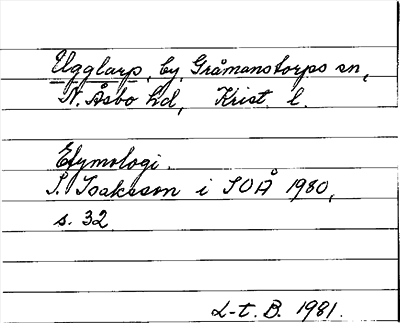 Ugglarp, by, Gråmanstorps sn,
N. Åsbo hd, Krist. l.
Etymologi.
S. Isaksson i SOÅ 1980,
s. 32
L-t. B. 1981.